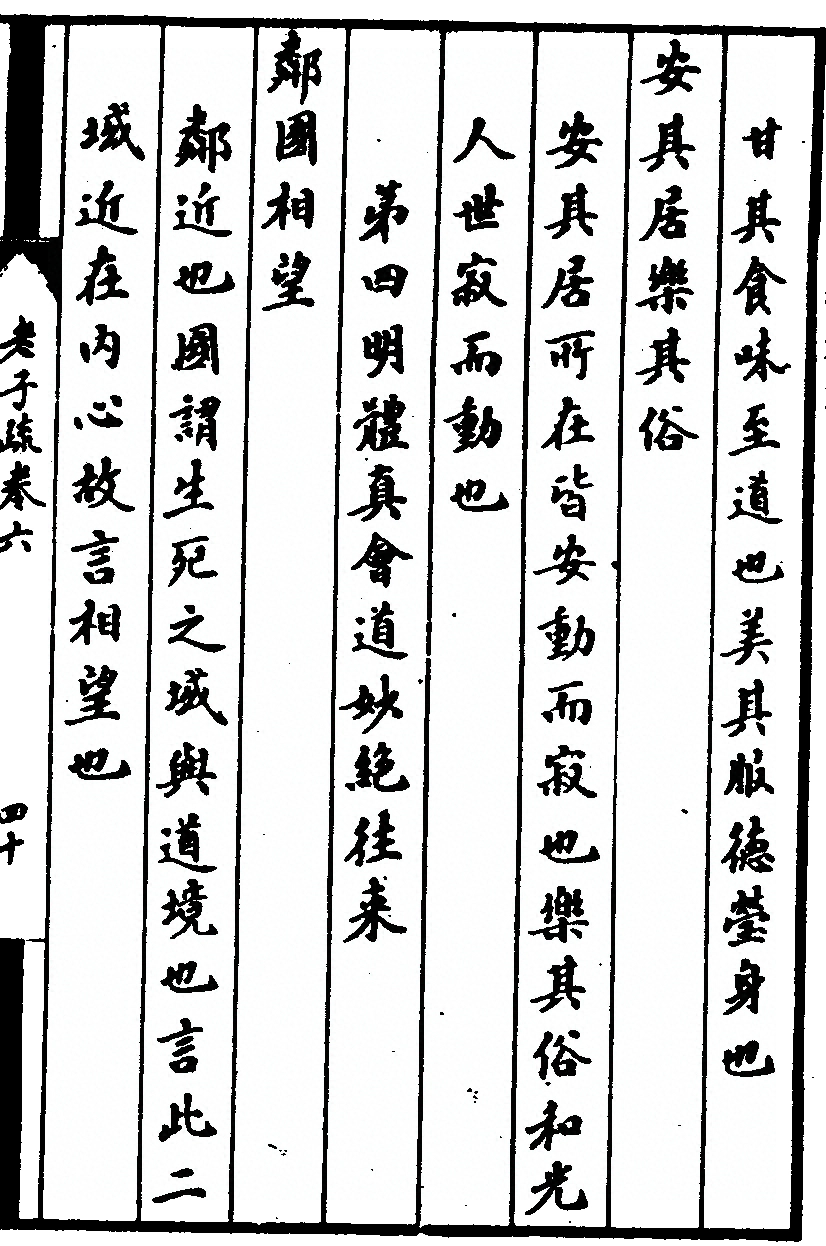 甘其食味至道也美其服德瑩身也
安其居樂其俗
安其居所在皆安動而寂也樂其俗和光
人世寂而動也
第四明體真會道妙絕往来
鄰國相望
鄰近也國謂生死之域與道境也言此二
域近在内心故言相望也
老子疏卷六
四十